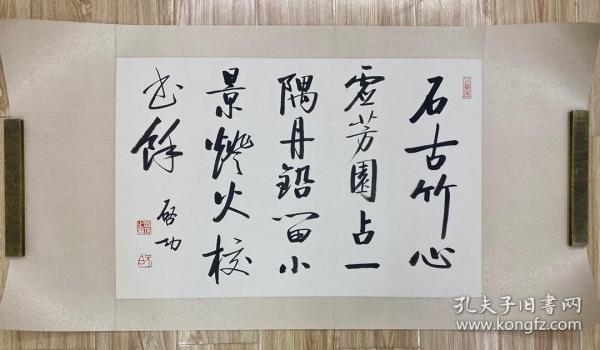 石古竹心
虚芳園占一
隅丹鉛留小
景燈火校
书餘
啓功
孔夫子旧书网
www.kongfz.com